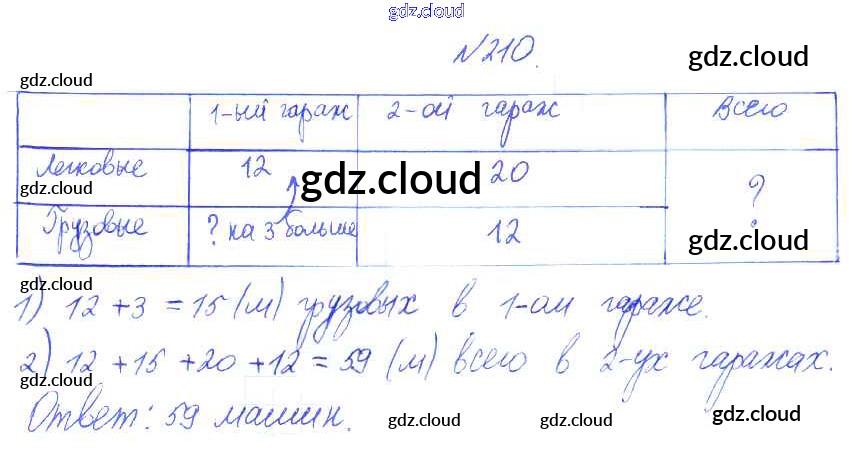 gdz.cloud
№210.
gdz.cloud
gdz.cloud
1-ый гараж 2-ой гараж Всего
Легковые 12 gdz.cloud 20 ?
gdz.cloud
Грузовые ? на 3 больше 12
gdz.cloud
1) 12 + 3 = 15 (м) грузовых в 1-ом гараже.
2) 12 + 15 + 20 + 12 = 59 (м) всего в 2-ух гаражах.
gdz.cloud
Ответ: 59 машин.
gdz.cloud gdz.cloud gdz.cloud